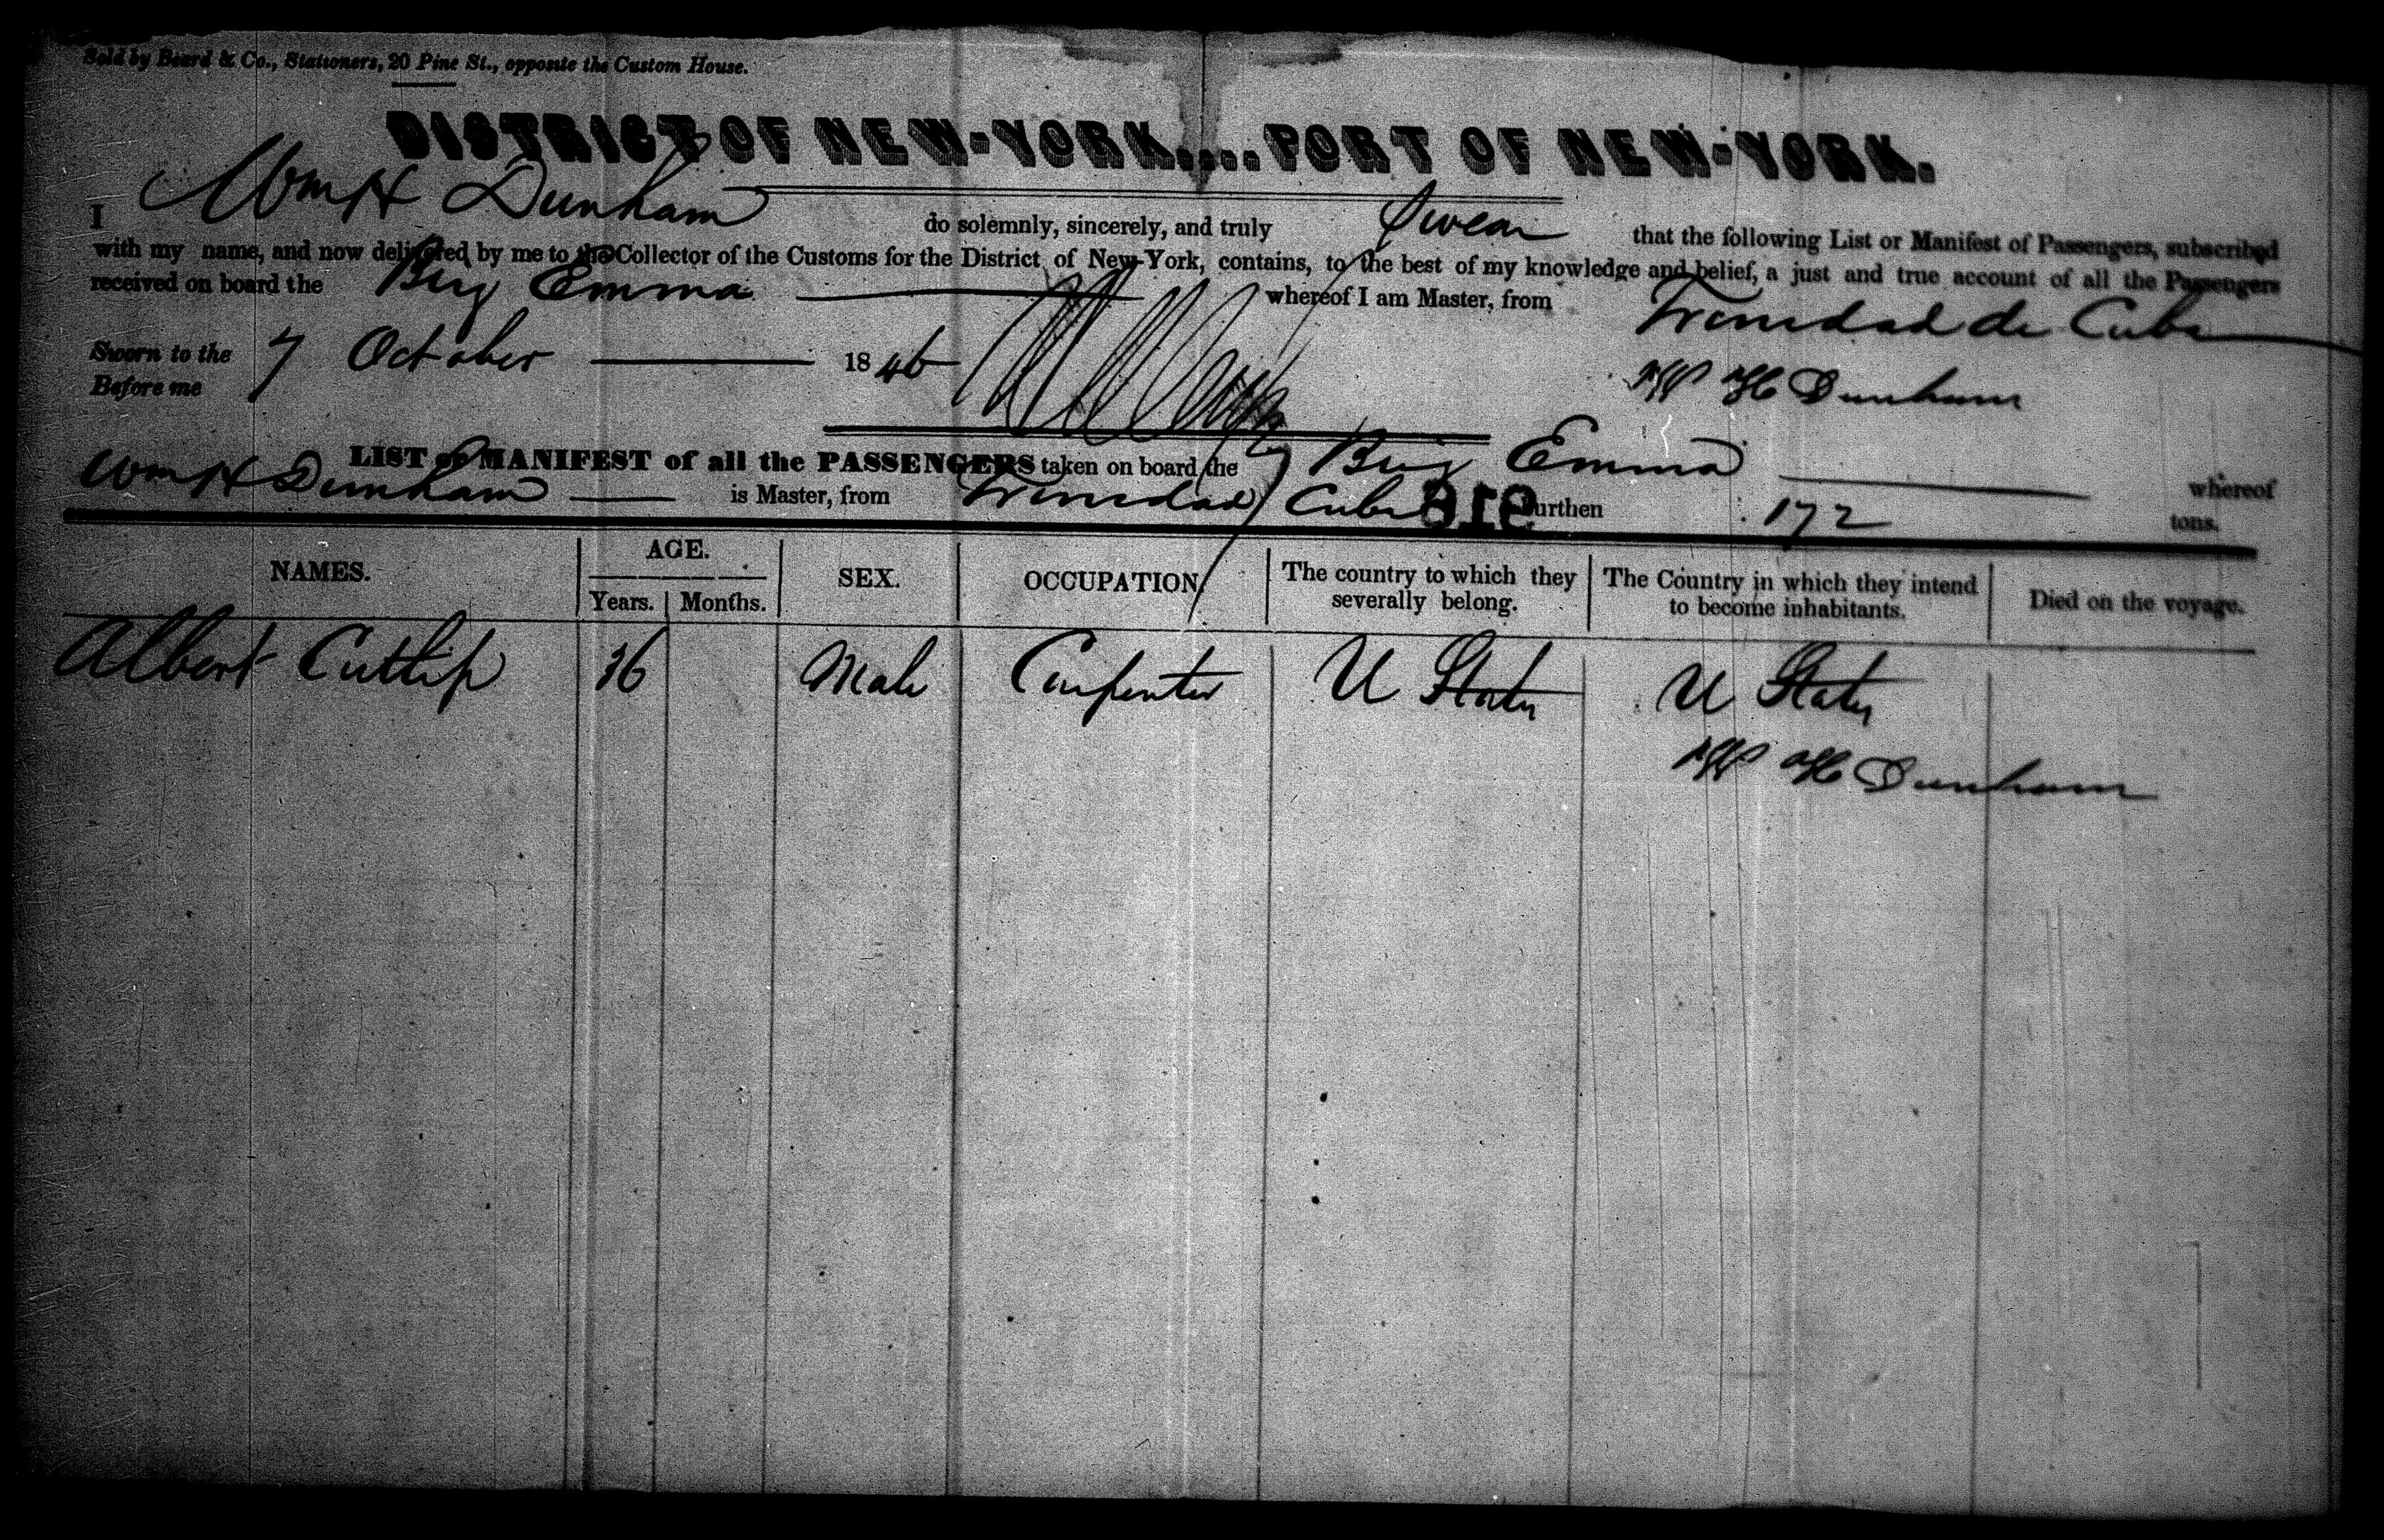 Sold by Beard & Co., Stationers, 20 Pine St., opposite the Custom House.
DISTRICT OF NEW-YORK....PORT OF NEW-YORK.
I Wm H Dunham do solemnly, sincerely, and truly Swear that the following List or Manifest of Passengers, subscribed
with my name, and now delivered by me to the Collector of the Customs for the District of New-York, contains, to the best of my knowledge and belief, a just and true account of all the Passengers
received on board the Brig Emma whereof I am Master, from Trinidad de Cuba
Sworn to the 7 October 1846
Before me
W H Dunham
LIST or MANIFEST of all the PASSENGERS taken on board the Brig Emma whereof
Wm H Dunham is Master, from Trinidad Cuba 916 burthen 172 tons.
NAMES. AGE. SEX. OCCUPATION The country to which they severally belong. The Country in which they intend to become inhabitants. Died on the voyage.
Years. Months.
Albert Cutlip 36 Male Carpenter U States U States
W H Dunham